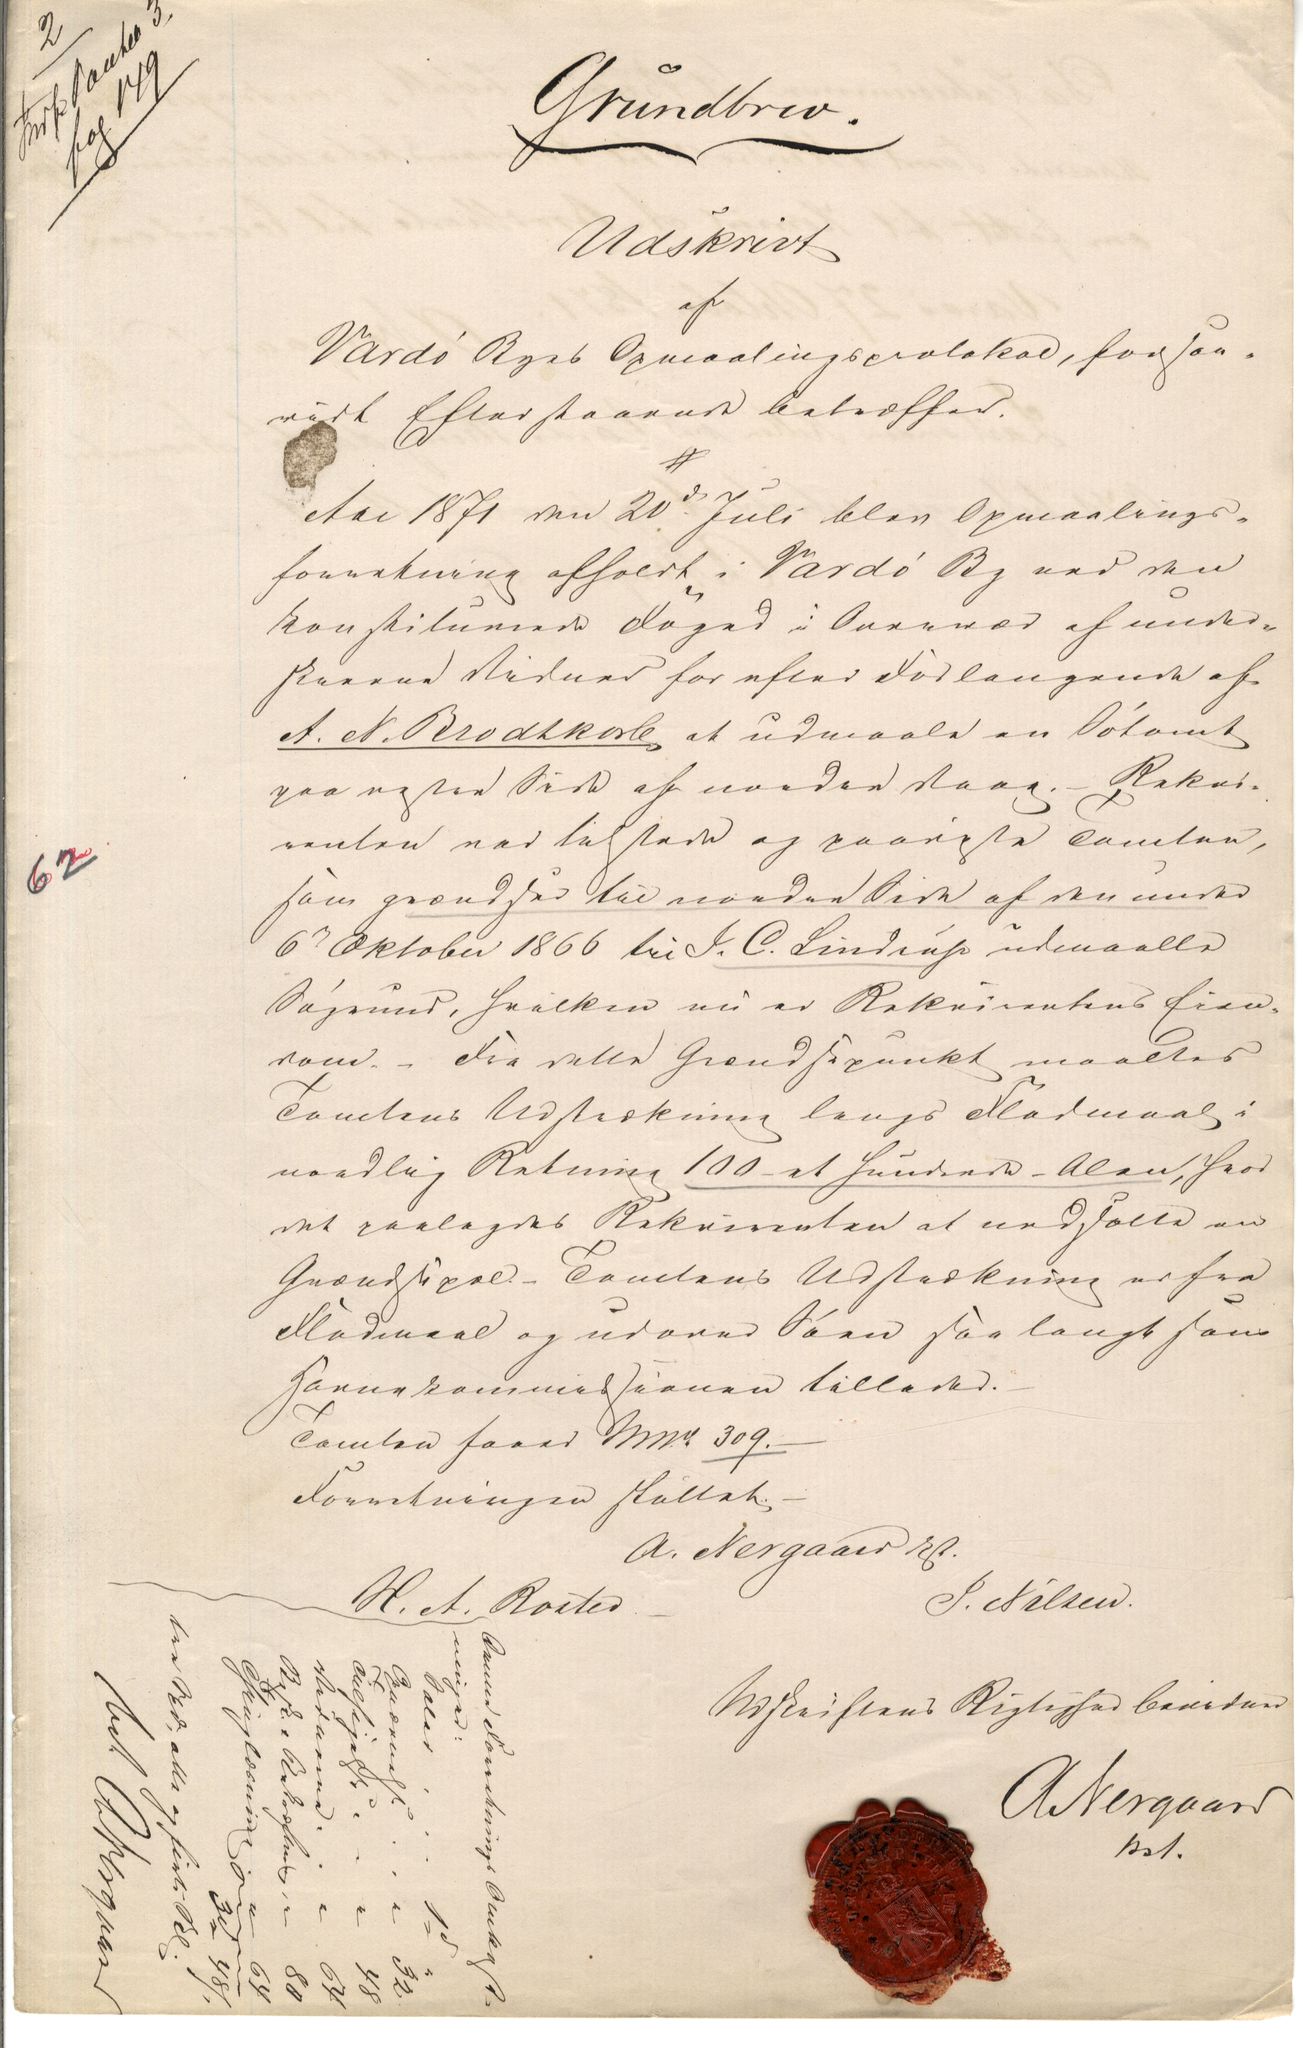 2
Indf. Panteb 3,
pag 149
Grundbrev.
Udskrivt
af
Vardö Byes Opmaalingsprotokol, forsaa-
vidt Efterstaaende betræffer.
Aar 1871 den 20de Juli blev Opmaalings-
forretning afholdt i Vardö By ved den
konstituerede Foged i af under-
skrevne Vidner for efter Forlangende af
A. N. Brodtkorb at udmaale en Sötomt
paa vestre Side af nordre Vaag. - Rekvi-
renten var tilstede og paaviste Tomten,
som grændser til nordre Side af den under
6te Oktober 1866 til J. C. Lindrup udmaalte
Sögrund, hvilken nu er Rekvirentens Eien-
dom. - Fra dette Grændsepunkt maaltes
Tomtens Udstrækning langs Flodmaal i
nordlig Retning 100 - et hundrede - Alen, hvor
det paalagdes Rekvirenten at nedsætte en
Grændsepæl. - Tomtens Udstrækning er fra
Flodmaal og udover Söen saa langt som
Havnekommissionen tillader. -
Tomten faaer MNo 309. -
Forretningen sluttet. -
A. Nergaard kst.
H. A. Rosted
J. Nilsen.
Udskriftens Rigtighed bevidner
A Nergaard
kst.
62
Denne Forretnings Omkost-
ninger:
1 d
32
48
Vidnerne 64
Beskr. 80
Thinglæsning 64
3 d 48 s.
tre Spd. otte og firti Skl.
A Nergaard